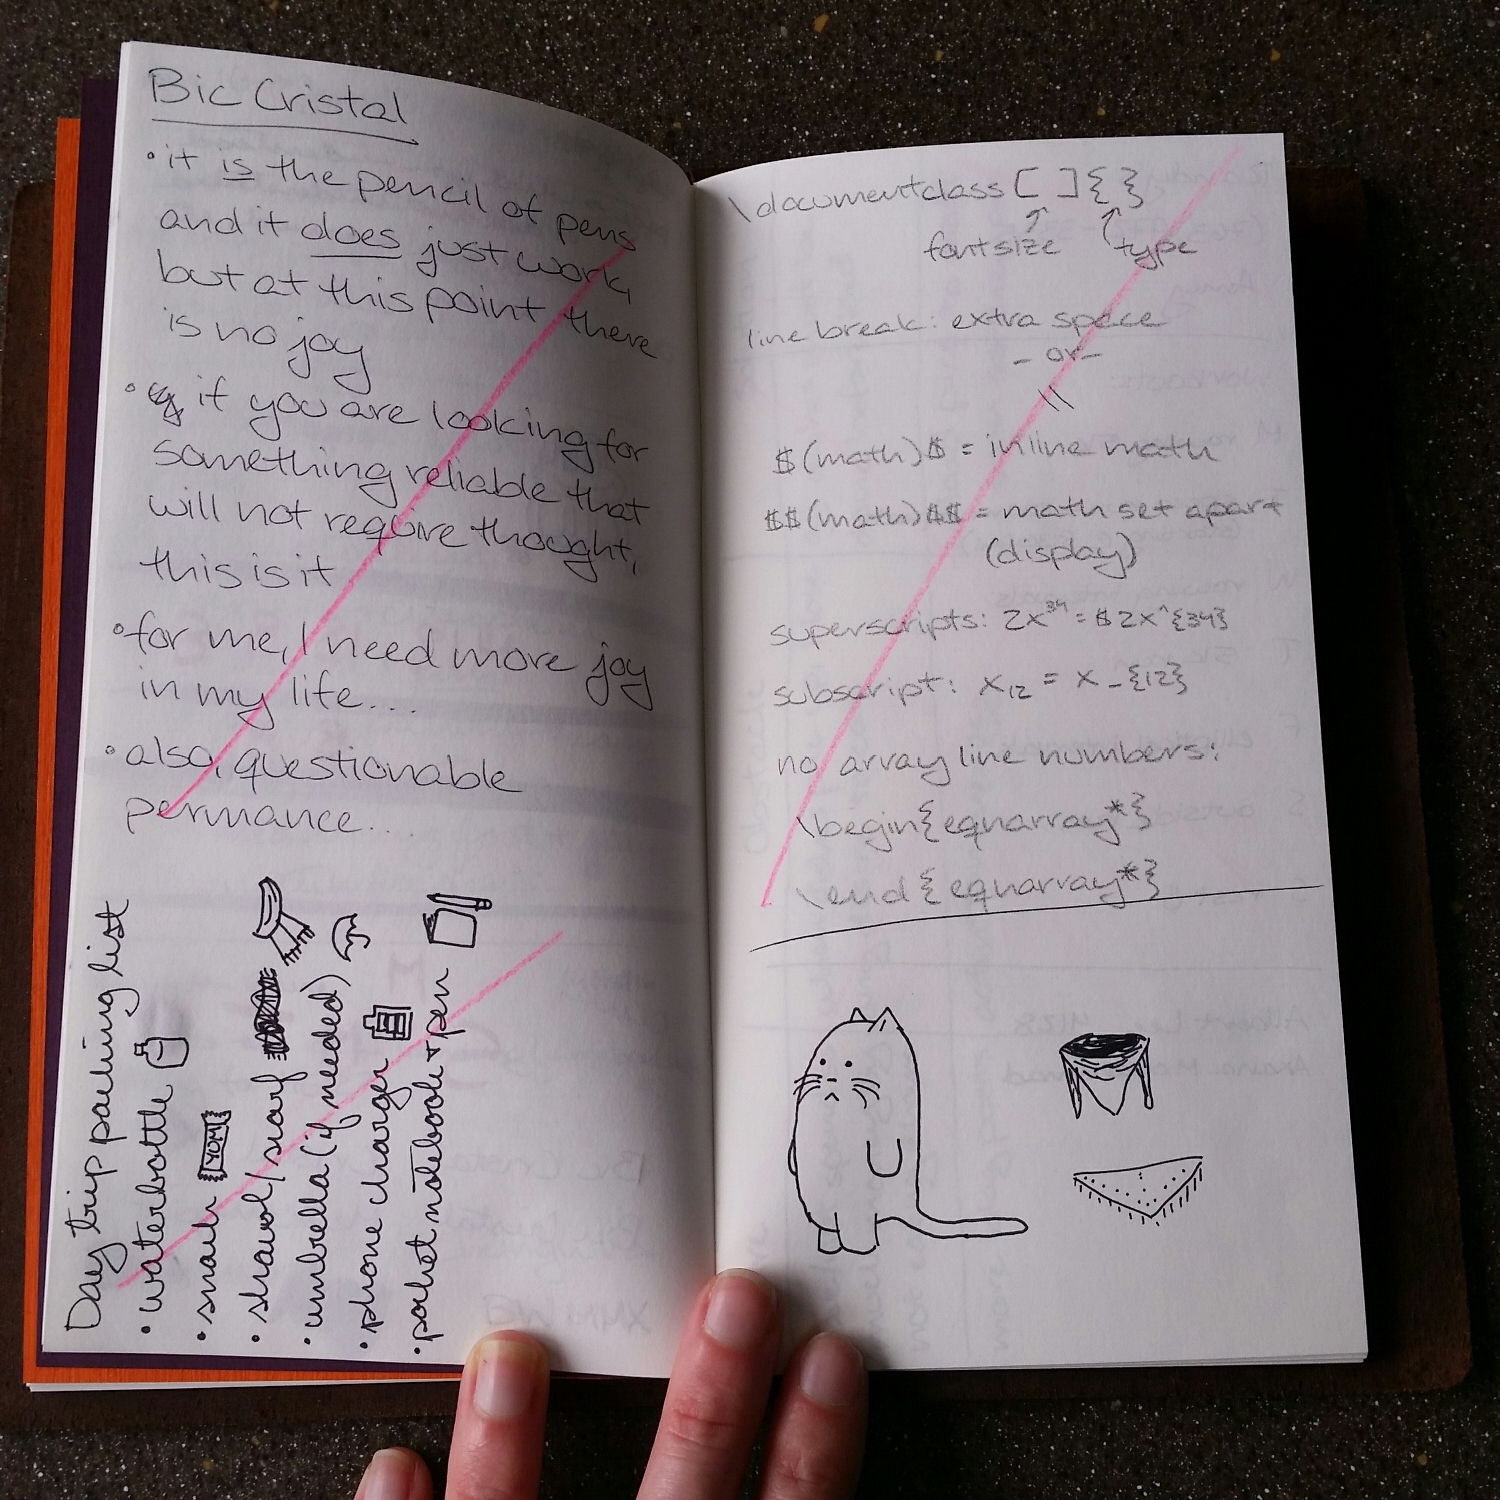 Bic Cristal
• it is the pencil of pens
and it does just work,
but at this point there
is no joy
• if you are looking for
something reliable that
will not require thought,
this is it
• for me, I need more joy
in my life...
• also, questionable
permance....
Day trip packing list
• waterbottle
• snack
YUM
• shawl/scarf
• umbrella (if needed)
• phone charger
• pocket notebook + pen
\documentclass [ ] { }
font size type
line break: extra space
- or -
\\
$(math)$ = inline math
$$(math)$$ = math set apart
(display)
superscripts: 2x³⁴ = $2x^{34}
subscript: x₁₂ = x_{12}
no array line numbers:
\begin{eqnarray*}
\end{eqnarray*}